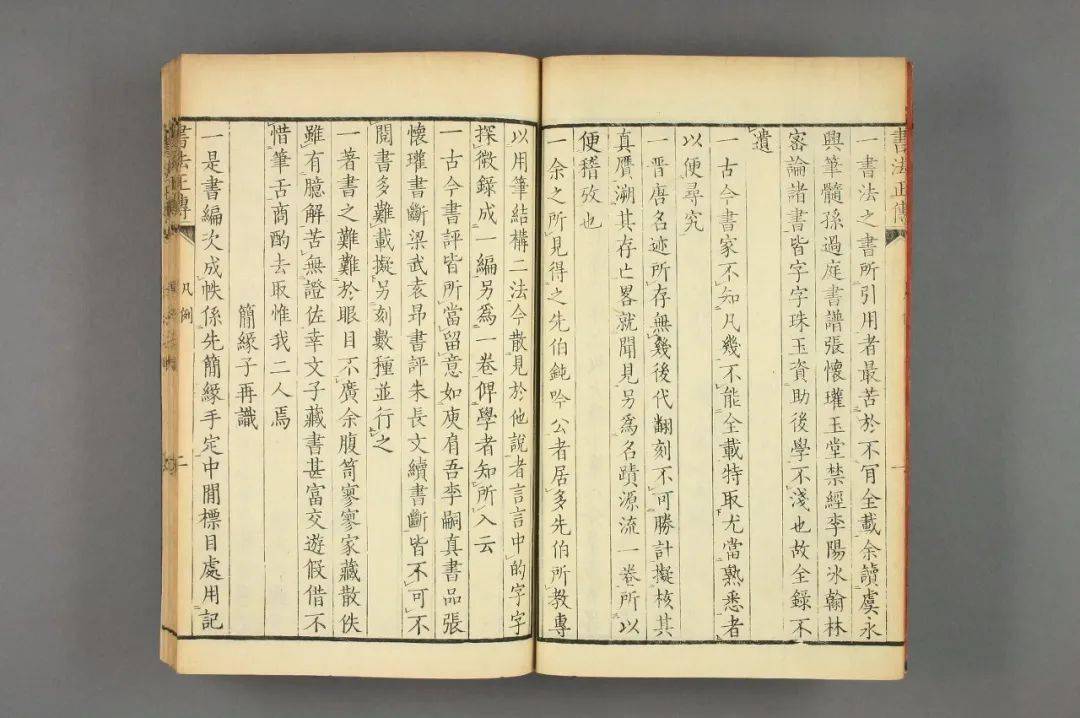 書法正傳
一書法之書所引用者最苦於不肎全載余讀虞永
興筆髓孫過庭書譜張懷瓘玉堂禁經李陽冰翰林
密論諸書皆字字珠玉資助後學不淺也故全錄不
遺
一古今書家不知凡幾不能全載特取尤當熟悉者
以便尋究
一晋唐名迹所存無幾後代翻刻不可勝計擬核其
真贋溯其存亡畧就聞見另為名蹟源流一卷所以
便稽攷也
一余之所見得之先伯鈍吟公者居多先伯所教專
以用筆結構二法今散見於他說者言言中的字字
探微錄成一編另為一卷俾學者知所入云
一古今書評皆所當留意如庾肩吾李嗣真書品張
懷瓘書斷梁武袁昂書評朱長文續書斷皆不可不
閱書多難載擬另刻數種並行之
一著書之難難於眼目不廣余腹笥寥寥家藏散佚
雖有臆解苦無證佐幸文子藏書甚富交遊假借不
惜筆舌商酌去取惟我二人焉
簡緣子再識
一是書編次成帙係先簡緣手定中間標目處用記
書法正傳
凡例
二